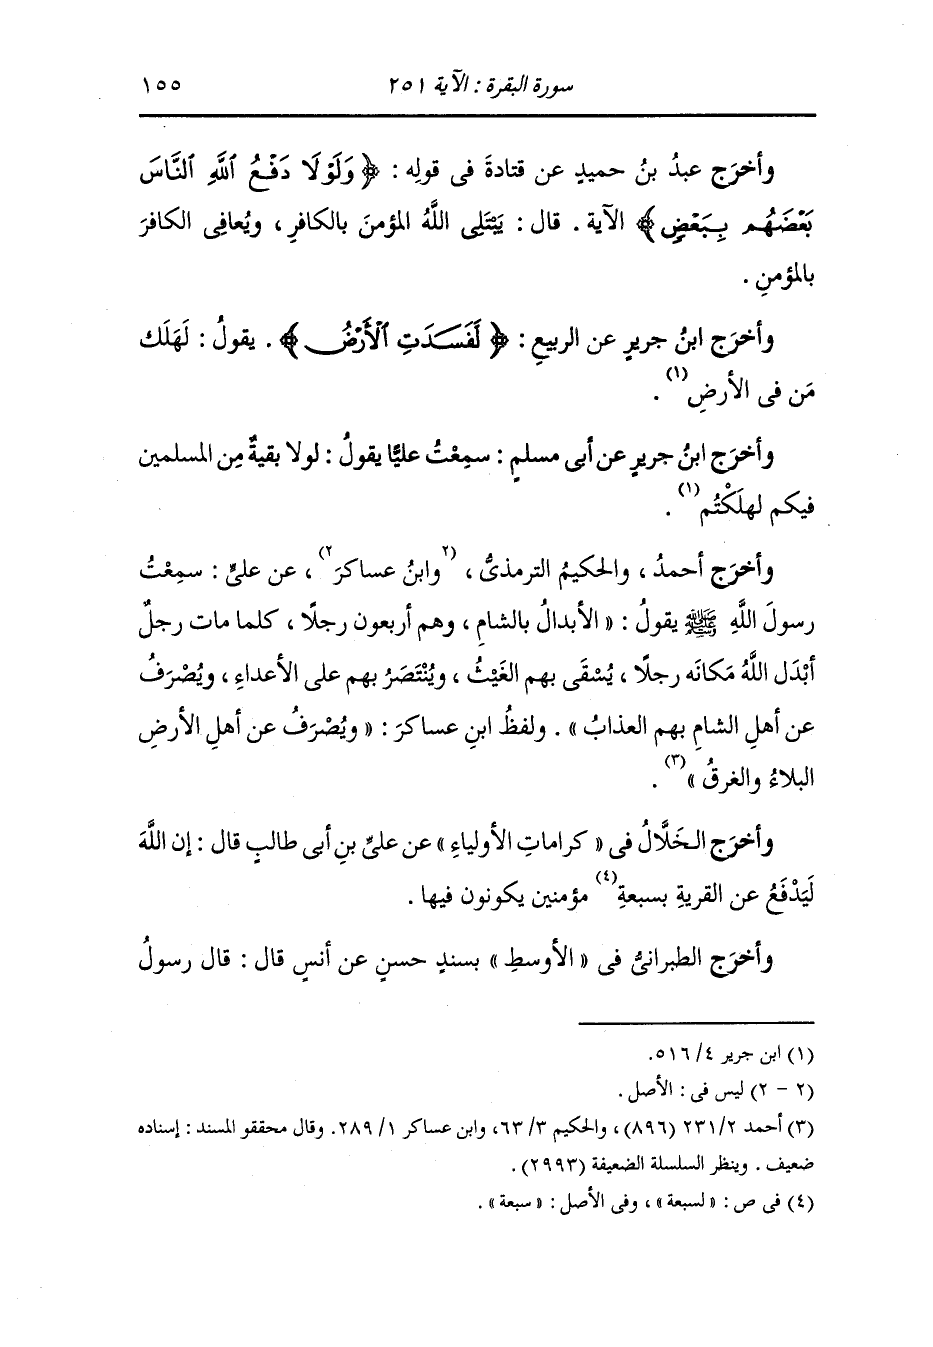 سورة البقرة : الآية ٢٥١ ١٥٥
وأخرَج عبدُ بنُ حميدٍ عن قتادةَ فى قولِه : ﴿ وَلَوْلَا دَفْعُ ٱللَّهِ ٱلنَّاسَ
بَعْضَهُم بِبَعْضٍ ﴾ الآية . قال : يَبْتَلِى اللَّهُ المؤمنَ بالكافرِ ، ويُعافِى الكافرَ
بالمؤمنِ .
وأخرَج ابنُ جريرٍ عن الربيعِ : ﴿ لَفَسَدَتِ ٱلْأَرْضُ ﴾ . يقولُ : لَهَلَك
مَن فى الأرضِ(١) .
وأخرَج ابنُ جريرٍ عن أبى مسلمٍ : سمِعْتُ عليًّا يقولُ : لولا بقيةٌ مِن المسلمين
فيكم لهلَكْتُم(١) .
وأخرَج أحمدُ ، والحكيمُ الترمذىُّ ، (٢وابنُ عساكرَ٢) ، عن علىٍّ : سمِعْتُ
رسولَ اللَّهِ ﷺ يقولُ : « الأبدالُ بالشامِ ، وهم أربعون رجلًا ، كلما مات رجلٌ
أبْدَل اللَّهُ مَكانَه رجلًا ، يُسْقَى بهم الغَيْثُ ، ويُنْتَصَرُ بهم على الأعداءِ ، ويُصْرَفُ
عن أهلِ الشامِ بهم العذابُ » . ولفظُ ابنِ عساكرَ : « ويُصْرَفُ عن أهلِ الأرضِ
البلاءُ والغرقُ »(٣) .
وأخرَج الخَلَّالُ فى « كراماتِ الأولياءِ » عن علىِّ بنِ أبى طالبٍ قال : إن اللَّهَ
لَيَدْفَعُ عن القريةِ بسبعةِ(٤) مؤمنين يكونون فيها .
وأخرَج الطبرانىُّ فى « الأوسطِ » بسندٍ حسنٍ عن أنسٍ قال : قال رسولُ
(١) ابن جرير ٤/ ٥١٦.
(٢ - ٢) ليس فى : الأصل .
(٣) أحمد ٢٣١/٢ (٨٩٦) ، والحكيم ٣/ ٦٣، وابن عساكر ١/ ٢٨٩. وقال محققو المسند : إسناده
ضعيف . وينظر السلسلة الضعيفة (٢٩٩٣) .
(٤) فى ص : « لسبعة » ، وفى الأصل : « سبعة » .